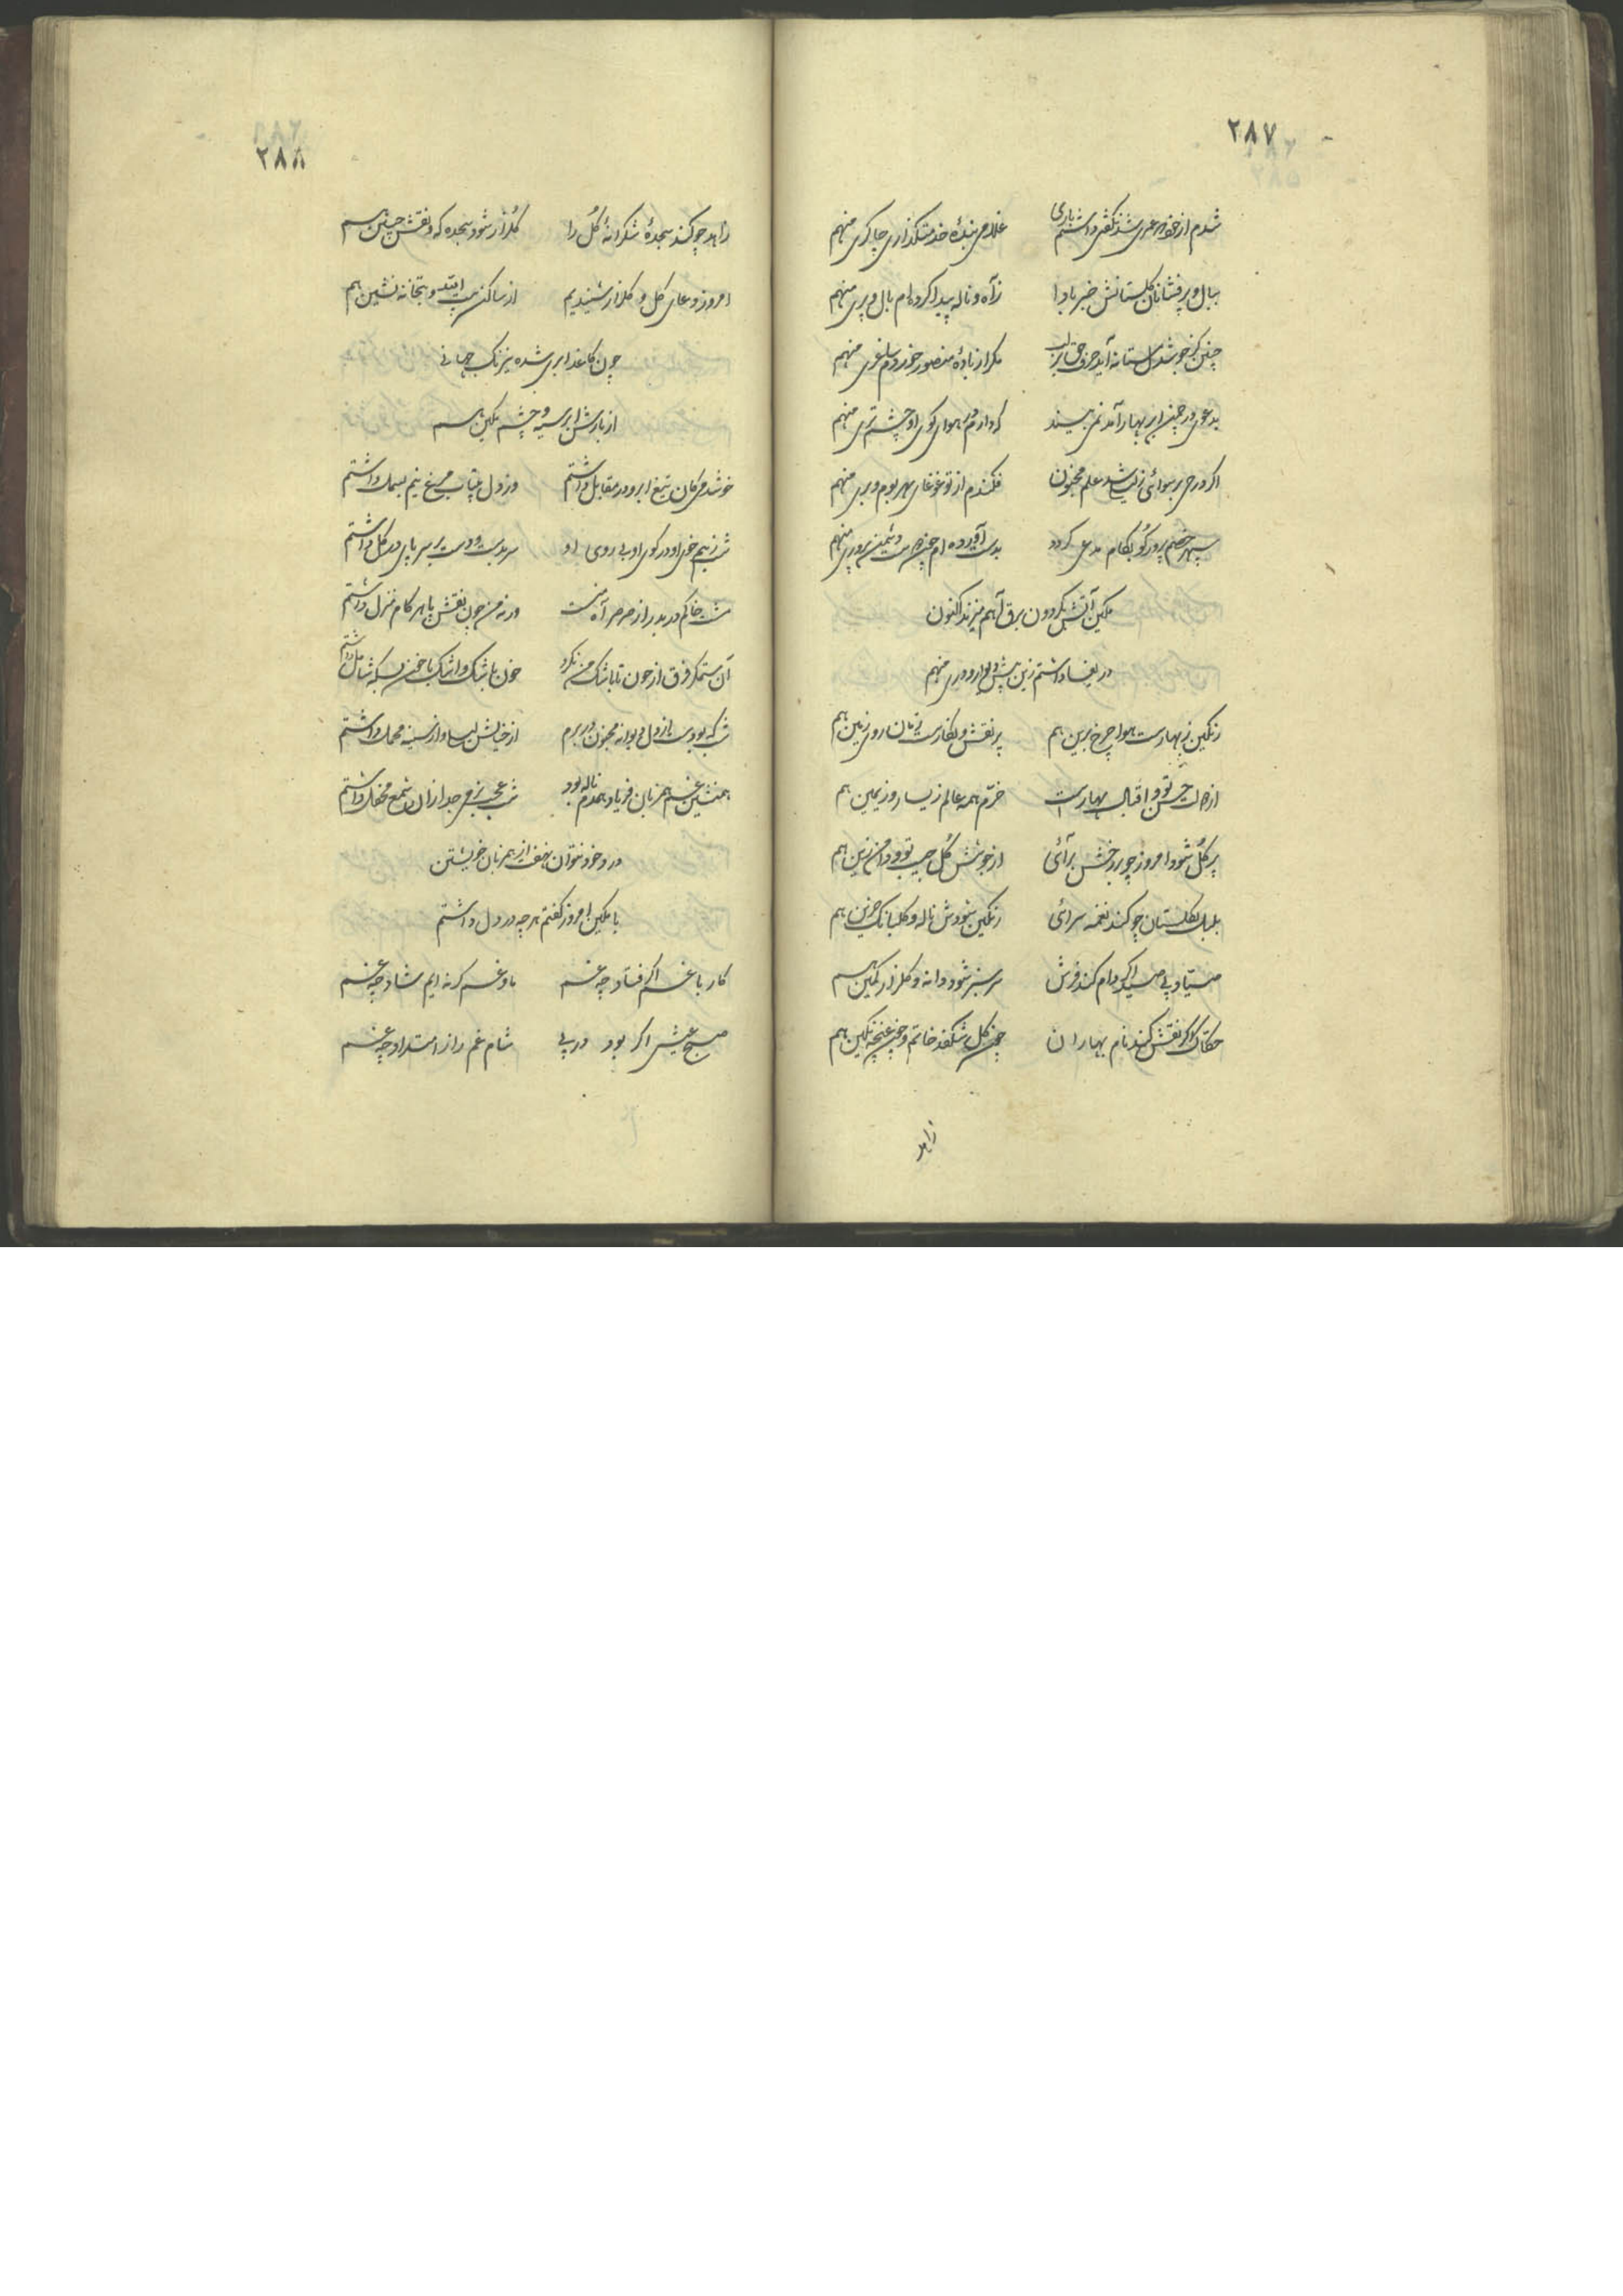 ۲۸۷
شدم از خود عمری شد نکفتی داشتم یاری غلامی بنده خدمتکذاری چاکری منهم
ببال و پر فشانان کلستانش خبر بادا ز آه و ناله پیدا کرده ام بال و پری منهم
چنین کز جوشش مستانه آید حرف حق بر لب مکر از باده منصور خوردم ساغری منهم
مدعی در چمن ابر بهار آمد نمی بیند که دارم در هوای کوی او چشم تری منهم
اکر در برسوائی شد علم مجنون فکندم از تو غوغا بهر بوم و بری منهم
سپهر خصم پرور کو بکام مدعی کردد بدست آورده ام چون دوست دشمن پروری منهم
مکین آتش بکردون برق آهم میزند اکنون
دریغا داشتم زین پیش منهم
رنکین ز بهارست هوا چرخ برین هم پر نقش و نکارست زمان روی زمین هم
از حسن تو و اقبال بهارست خرم همه عالم ز یسار و ز یمین هم
پر کل شود امروز چو بر رخش برآئی از جوشش کل جیب تو و دامن زین هم
بلبل بکلستان چو کند نغمه سرائی رنکین شودش ناله و کلبانک حزین هم
صیاد پی صید اکر دام کند فرش سرسبز شود دانه و کلزار کمین هم
حکاک اکر نقش کند نام بهاران چون کل شکفد خاتم و چون غنچه نکین هم
زاهد
۲۸۸
زاهد چو کند سجده شکرانه کل را کلزار شود سجده که و نقش جبین هم
امروز دعای کل و کلزار شنیدیم از ساکن بیت الله و بتخانه نشین هم
چون کاغذ ابری شده نیرنک جهانی
از بارش ابر سیه و چشم مکین هم
خوشدمی کان تیغ ابرو در مقابل داشتم وز دل بیتاب مرغ نیم بسمل داشتم
شب ز بیم خوی او در کوی او بی روی او سر بدست و دست بر سر پای در کل داشتم
مشت خاکم در بدر از صرصر آه منست ورنه من چون نقش پا هر کام منزل داشتم
آن ستمکر فرق از خون تا باشک من نکرد خون باشک و اشک با خون بسکه شامل داشتم
شب که بودست از دل دیوانه مجنون در برم از خیالش لیلی و از سینه محمل داشتم
همنشین غم همزبان فریاد همدم ناله بود شب عجب بزمی جدا زان شمع محفل داشتم
درد خود نتوان نهفت از همزبان خویشتن
با مکین امروز کفتم هر چه در دل داشتم
کار با غم اکر فتاد چه غم ما و غم کر نه ایم شاد چه غم
صبح عیش اکر بود در پی شام غم را ز امتداد چه غم